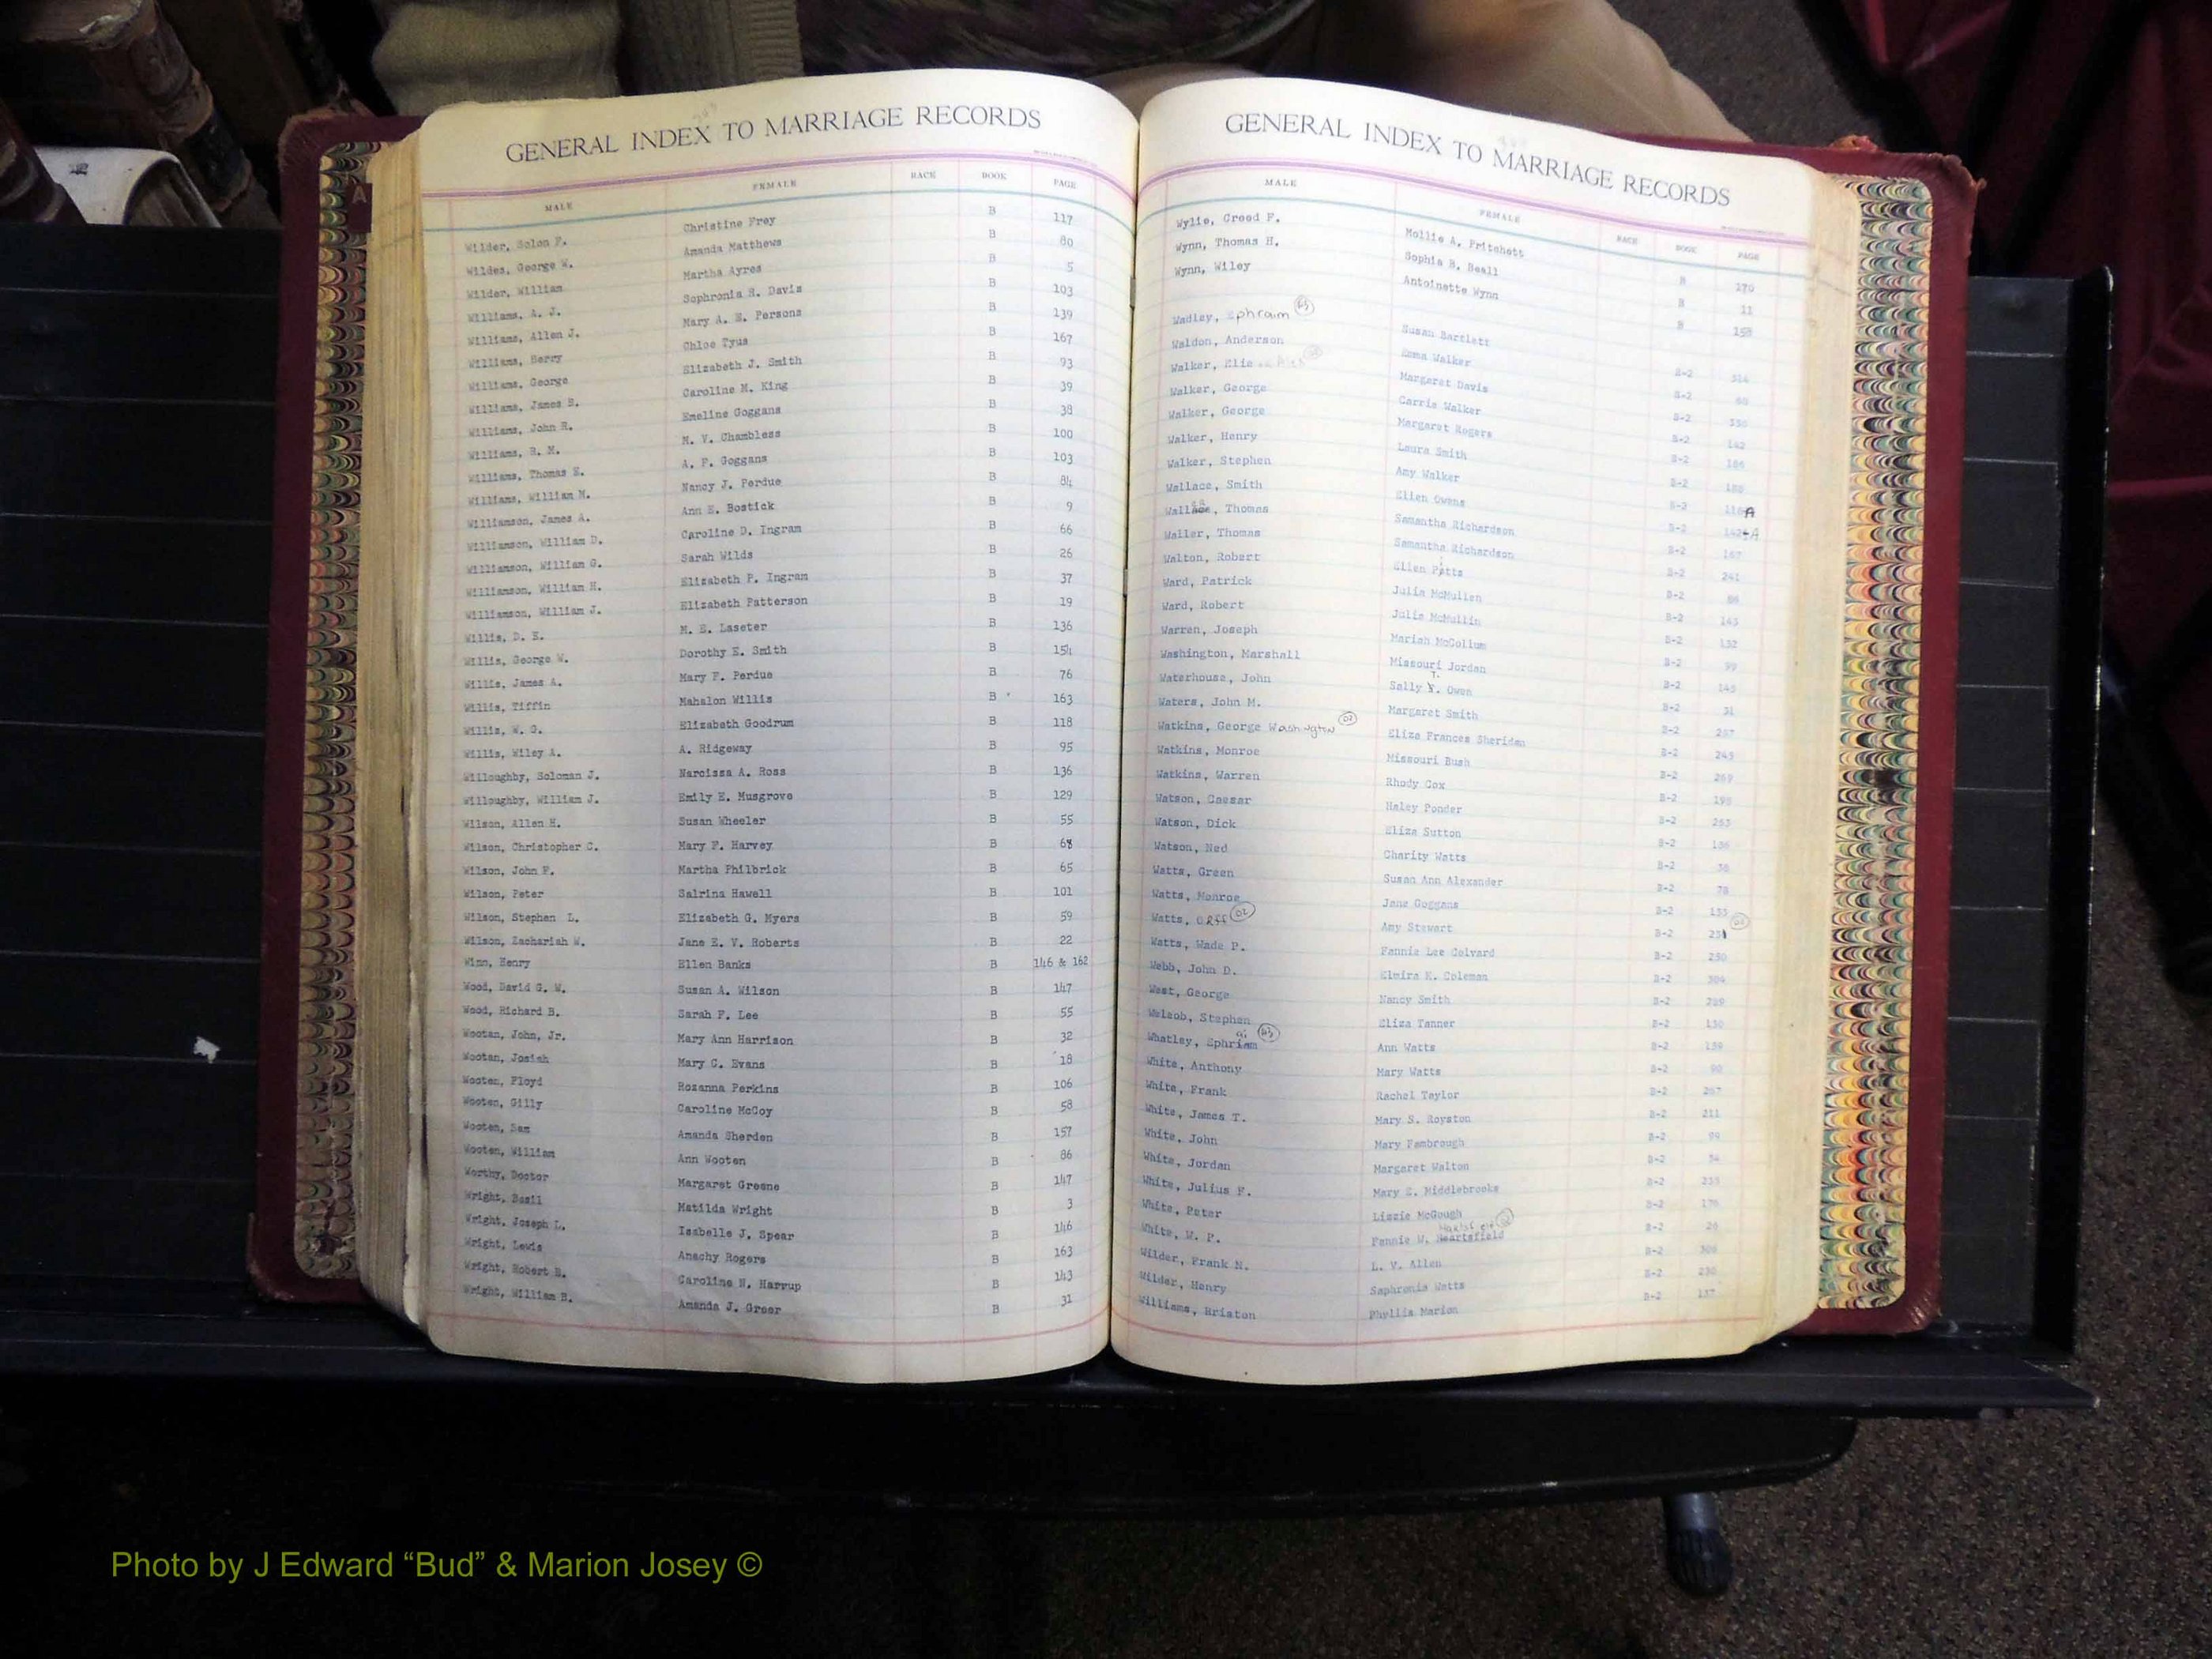 GENERAL INDEX TO MARRIAGE RECORDS
MALE FEMALE RACE BOOK PAGE
Wilder, Solon F. Christine Frey B 117
Wildes, George W. Amanda Matthews B 80
Wilder, William Martha Ayres B 5
Williams, A. J. Sophronia R. Davis B 103
Williams, Allen J. Mary A. E. Persons B 139
Williams, Berry Chloe Tyus B 167
Williams, George Elizabeth J. Smith B 93
Williams, James B. Caroline M. King B 39
Williams, John R. Emeline Goggans B 38
Williams, R. M. M. V. Chambless B 100
Williams, Thomas E. A. P. Goggans B 103
Williams, William M. Nancy J. Perdue B 84
Williamson, James A. Ann E. Bostick B 9
Williamson, William D. Caroline D. Ingram B 66
Williamson, William G. Sarah Wilds B 26
Williamson, William H. Elizabeth P. Ingram B 37
Williamson, William J. Elizabeth Patterson B 19
Willis, D. E. M. E. Laseter B 136
Willis, George W. Dorothy E. Smith B 154
Willis, James A. Mary F. Perdue B 76
Willis, Tiffin Mahalon Willis B 163
Willis, W. G. Elizabeth Goodrum B 118
Willis, Wiley A. A. Ridgeway B 95
Willoughby, Soloman J. Narcissa A. Ross B 136
Willoughby, William J. Emily E. Musgrove B 129
Wilson, Allen H. Susan Wheeler B 55
Wilson, Christopher C. Mary F. Harvey B 68
Wilson, John F. Martha Philbrick B 65
Wilson, Peter Salrina Hawell B 101
Wilson, Stephen L. Elizabeth G. Myers B 59
Wilson, Zachariah W. Jane E. V. Roberts B 22
Winn, Henry Ellen Banks B 146 & 162
Wood, David G. W. Susan A. Wilson B 147
Wood, Richard B. Sarah F. Lee B 55
Wootan, John, Jr. Mary Ann Harrison B 32
Wootan, Josiah Mary C. Evans B 18
Wooten, Floyd Rozanna Perkins B 106
Wooten, Gilly Caroline McCoy B 58
Wooten, Sam Amanda Sherden B 157
Wooten, William Ann Wooten B 86
Worthy, Doctor Margaret Greene B 147
Wright, Basil Matilda Wright B 3
Wright, Joseph L. Isabelle J. Spear B 146
Wright, Lewis Anachy Rogers B 163
Wright, Robert B. Caroline N. Harrup B 143
Wright, William B. Amanda J. Greer B 31
GENERAL INDEX TO MARRIAGE RECORDS
MALE FEMALE RACE BOOK PAGE
Wylie, Creed F. Mollie A. Pritchett B 170
Wynn, Thomas H. Sophia B. Beall B 11
Wynn, Wiley Antoinette Wynn B 158
Wadley, Ephraim Susan Bartlett B-2 314
Waldon, Anderson Emma Walker B-2 60
Walker, Elie Margaret Davis B-2 330
Walker, George Carrie Walker B-2 142
Walker, George Margaret Rogers B-2 186
Walker, Henry Laura Smith B-2 188
Walker, Stephen Amy Walker B-2 118A
Wallace, Smith Ellen Owens B-2
Wallace, Thomas Samantha Richardson B-2 167
Waller, Thomas Samantha Richardson B-2 241
Walton, Robert Ellen Pitts B-2
Ward, Patrick Julia McMullen B-2 143
Ward, Robert Julia McMullin B-2 132
Warren, Joseph Mariah McCollum B-2 99
Washington, Marshall Missouri Jordan B-2 145
Waterhouse, John Sally T. Owen B-2 31
Waters, John M. Margaret Smith B-2
Watkins, George Washington 02 Eliza Frances Sheridan B-2 245
Watkins, Monroe Missouri Bush B-2 269
Watkins, Warren Rhody Cox B-2 198
Watson, Caesar Haley Ponder B-2 263
Watson, Dick Eliza Sutton B-2 186
Watson, Ned Charity Watts B-2 38
Watts, Green Susan Ann Alexander B-2 78
Watts, Monroe Jane Goggans B-2 133
Watts, Orff 02 Amy Stewart B-2 231
Watts, Wade P. Fannie Lee Colvard B-2 230
Webb, John D. Elmira K. Coleman B-2 304
West, George Nancy Smith B-2 289
Welcob, Stephen Eliza Tanner B-2 130
Whatley, Ephriam Ann Watts B-2 159
White, Anthony Mary Watts B-2 90
White, Frank Rachel Taylor B-2 267
White, James T. Mary S. Royston B-2 211
White, John Mary Fambrough B-2 99
White, Jordan Margaret Walton B-2 54
White, Julius F. Mary E. Middlebrooks B-2 233
White, Peter Lizzie McGough B-2 176
White, W. P. Fannie W. Heartsfield B-2 20
Wilder, Frank N. L. V. Allen B-2 308
Wilder, Henry Saphronia Watts B-2 230
Williams, Briston Phyllis Marion B-2 137
Photo by J Edward “Bud” & Marion Josey ©